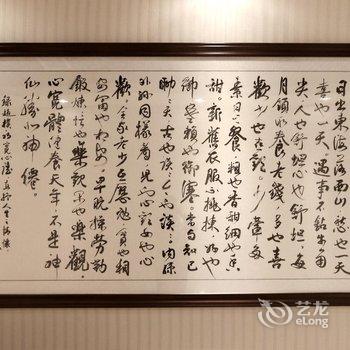 日出東海落西山愁也一天
喜也一天遇事不鑽牛角
尖人也舒坦心也舒坦每
月領取養老錢多也喜
歡少也喜歡少葷多
素日三餐粗也香甜細也香
甜新舊衣服不挑揀好也
御寒賴也御寒常與知己
聊々天古也談々今也談々內孫
外孫同樣看兒也心歡女也心
歡全家老少互慰勉貧也相
安富也相安早晚操勞勤
鍛煉忙也樂觀閑也樂觀
心寬體健養天年不是神
仙勝似神仙
錄趙樸初寬心謠
艺龙
eLong